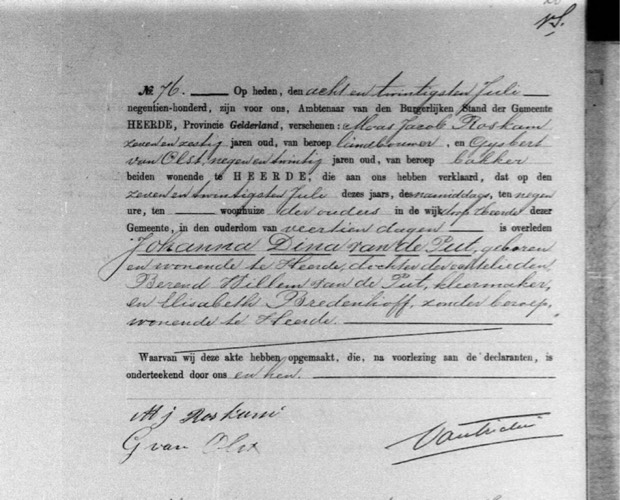 No 76. Op heden, den acht en twintigsten Juli
negentien-honderd, zijn voor ons, Ambtenaar van den Burgerlijken Stand der Gemeente
HEERDE, Provincie Gelderland, verschenen: Maas Jacob Roskam
zeven en zestig jaren oud, van beroep landbouwer, en Gysbert
van Olst, negen en twintig jaren oud, van beroep bakker
beiden wonende te HEERDE, die aan ons hebben verklaard, dat op den
zeven en twintigsten Juli dezes jaars, des namiddags, ten negen
ure, ten woonhuize der ouders in de wijk dorp Heerde dezer
Gemeente, in den ouderdom van veertien dagen is overleden
Johanna Dina van de Put, geboren
en wonende te Heerde, dochter der echtelieden
Berend Willem van de Put, kleermaker,
en Elisabeth Bredenhoff, zonder beroep,
wonende te Heerde.
Waarvan wij deze akte hebben opgemaakt, die, na voorlezing aan de declaranten, is
onderteekend door ons en hen.
M J Roskam
G van Olst